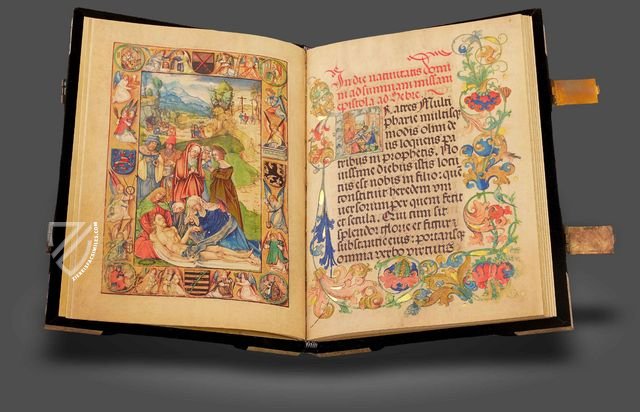 In die nativitatis domi
ni ad summam missam
epistola ad Hebre
Fratres Multi
pharie multisq
modis olim de
us loquens pa
tribus in prophetis. No
vissime diebus istis locu
tus est nobis in filio: que
constituit heredem vni
versorum per quem fecit
et secula. Qui cum sit
splendor glorie et figura
substantie eius: portansq
omnia verbo virtutis
ZIEREIS FACSIMILES.COM